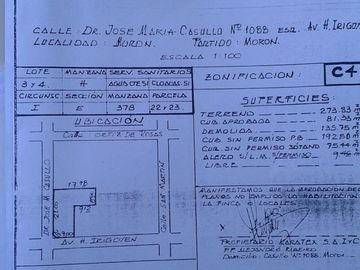 CALLE: DR. JOSE MARIA CASULLO Nº 1088 ESQ. AV. H. IRIGOYEN
LOCALIDAD: MORON. PARTIDO: MORON.
ESCALA 1:100
LOTE MANZANA SERV. SANITARIOS
3 y 4 H AGUA CTE SI CLOACAS: SI
CIRCUNSC. SECCIÓN MANZANA PARCELA
I E 378 22 y 23
ZONIFICACION: C4
UBICACIÓN
Calle ORTIZ DE ROSAS
DR. JOSE M. CASULLO
17.98
9.12
Calle SAN MARTIN
AV. H. IRIGOYEN
SUPERFICIES:
TERRENO 273.83 m
CUB. APROBADA 81.33 m
DEMOLIDA 135.75 m
CUB. SIN PERMISO P.B. 192.58 m
CUB. SIN PERMISO SÓTANO 75.44 m
ALERO S/L.M. S/PERMISO
LIBRE
MANIFESTAMOS QUE LA APROBACION DE
PLANOS NO IMPLICA HABILITACION
LA FINCA O LOCALES.
PROPIETARIO KARATEX S.A.I.Y C
Domicilio: CASULLO Nº 1088. MORON